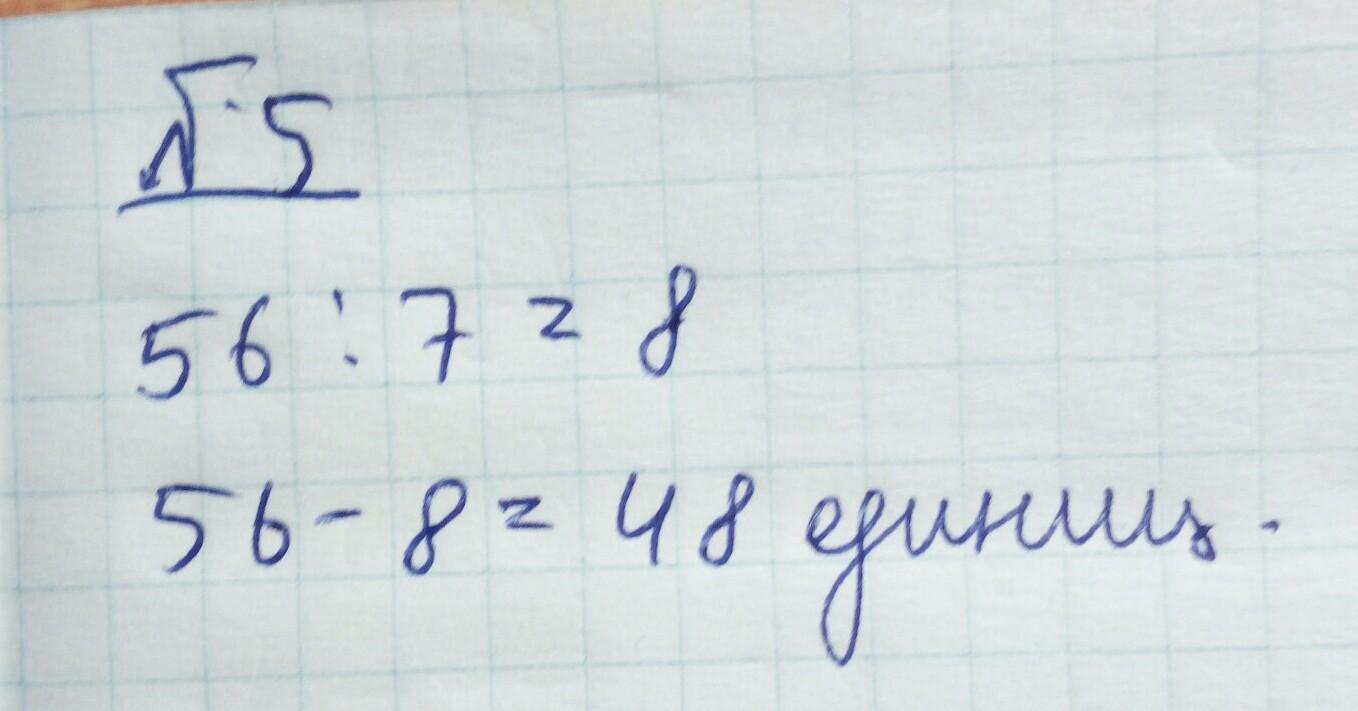 №5
56 : 7 = 8
56 - 8 = 48 единиц.